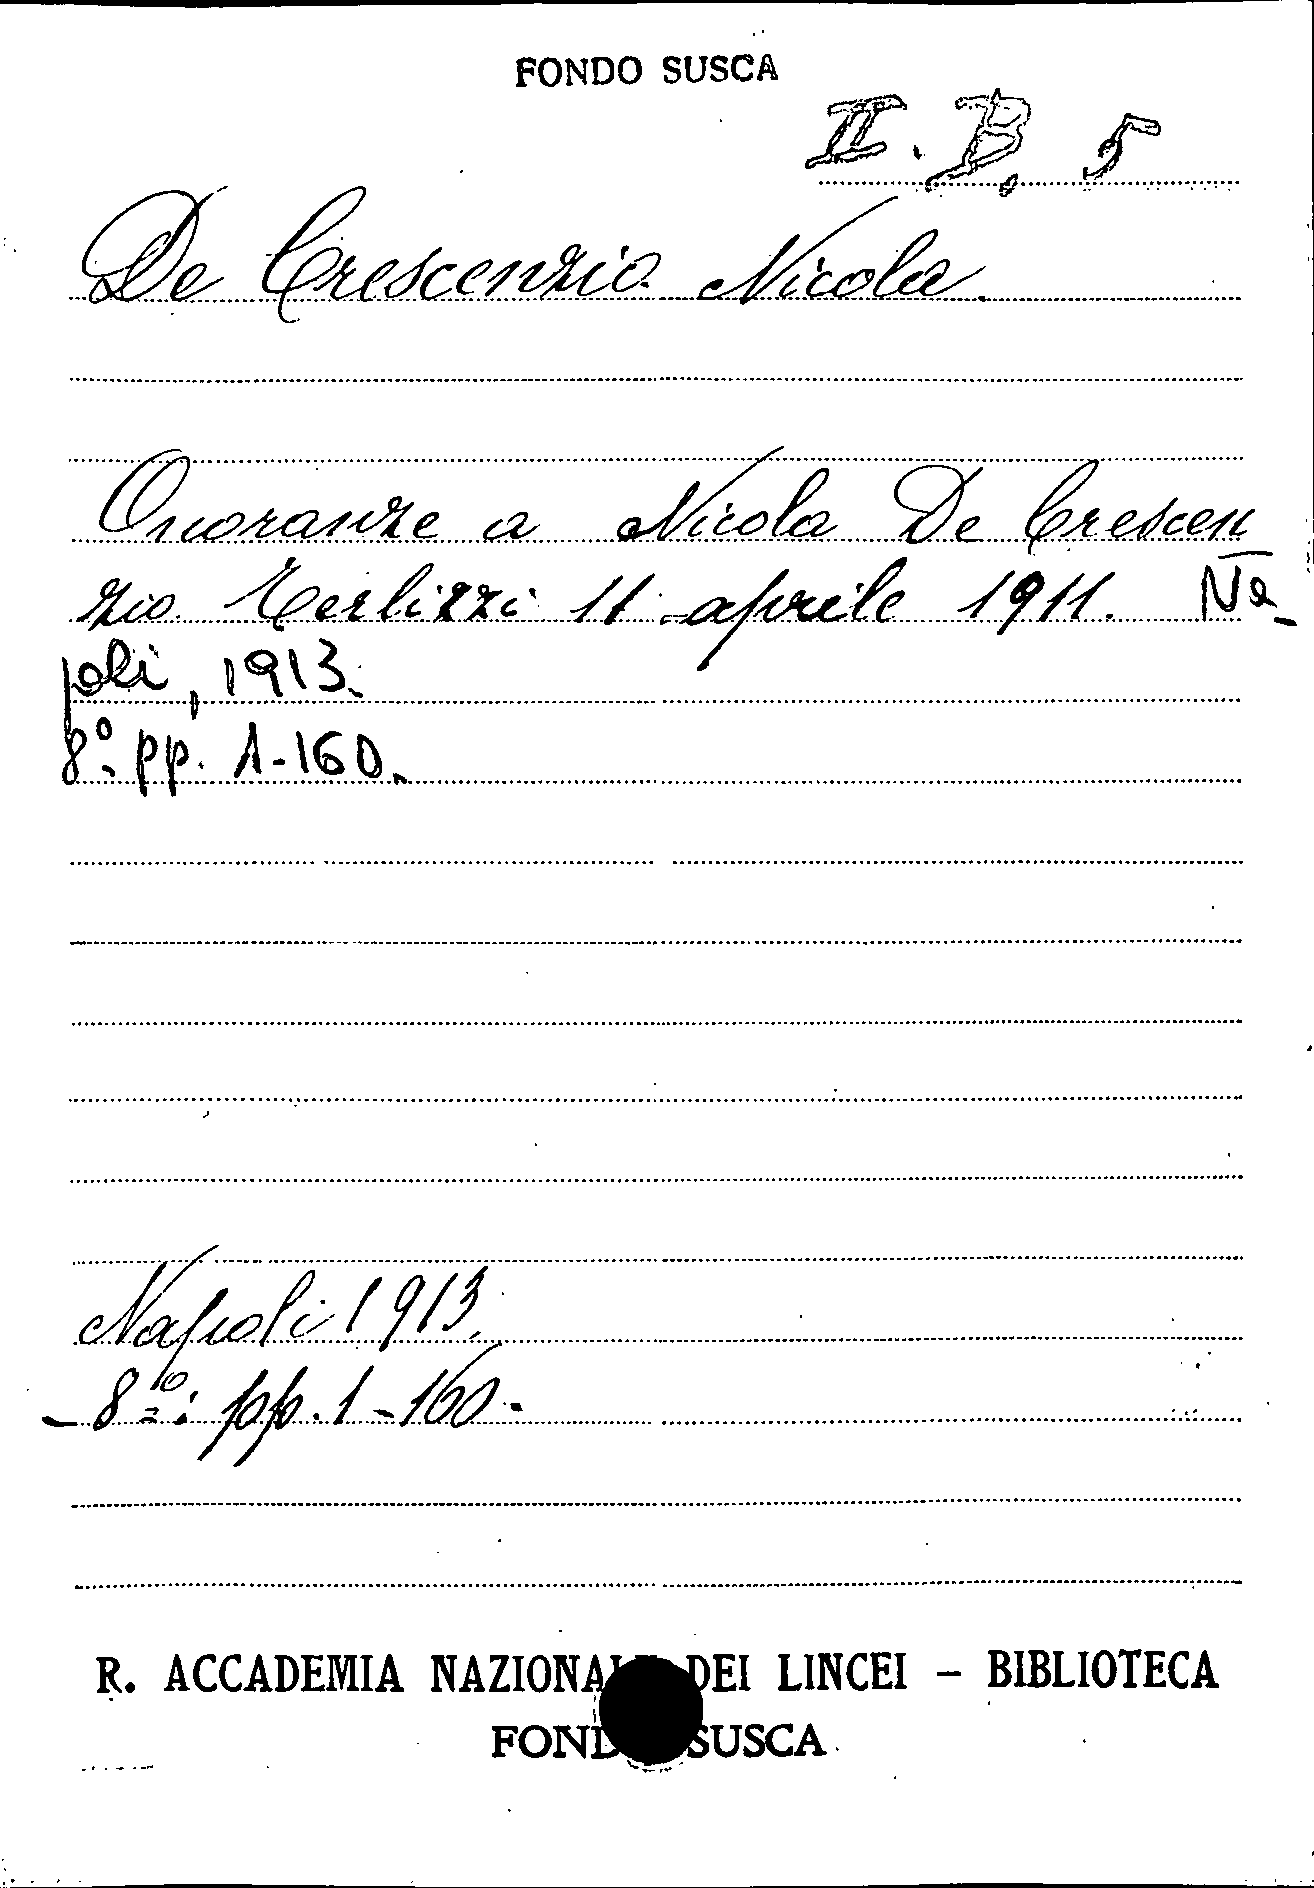 FONDO SUSCA
II. B, 5
De Crescenzio Nicola.
Onoranze a Nicola De Crescen
zio. Terlizzi 11 aprile 1911. Na-
poli, 1913.
8º. pp. 1-160.
Napoli 1913.
- 8º: pp. 1-160.-
R. ACCADEMIA NAZIONALE DEI LINCEI – BIBLIOTECA
FONDO SUSCA